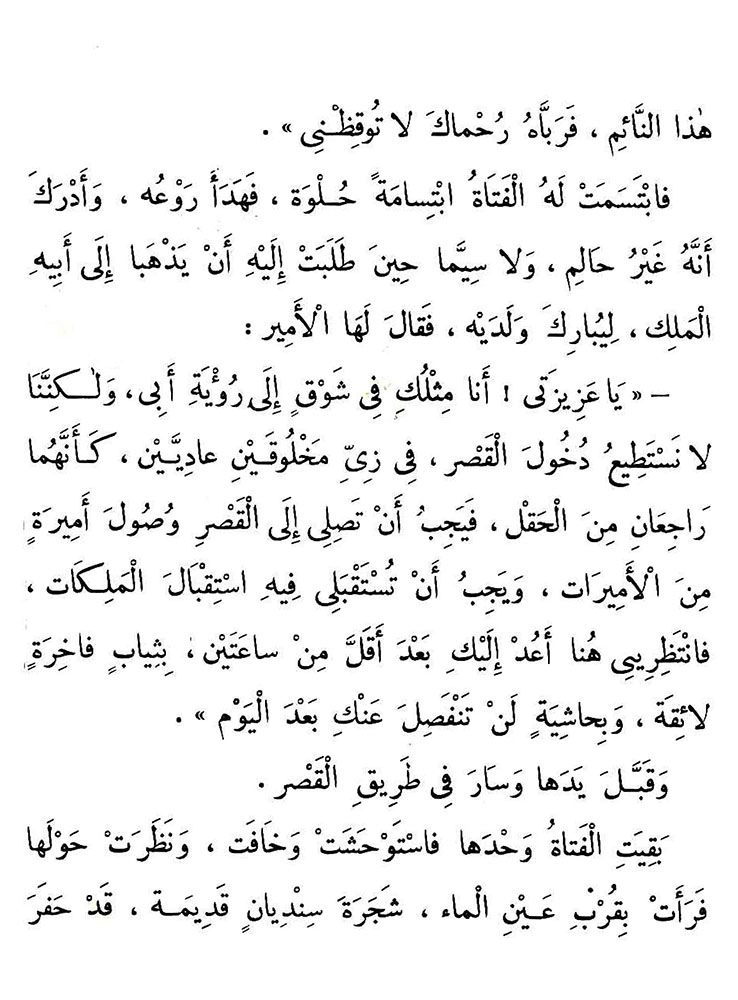 هٰذا النَّائِمِ ، فَرَبَّاهُ رُحْماكَ لا تُوقِظْنِى » .
فابْتَسَمَتْ لَهُ الْفَتَاةُ ابْتِسامَةً حُلْوَة ، فَهَدَأَ رَوْعُه ، وَأَدْرَكَ
أَنَّهُ غَيْرُ حَالِم ، وَلا سِيَّما حِينَ طَلَبَتْ إِلَيْهِ أَنْ يَذْهَبَا إِلَى أَبِيهِ
الْمَلِك ، لِيُبارِكَ وَلَدَيْه ، فَقالَ لَها الْأَمِير :
– « يَا عَزِيزَتى ! أَنا مِثْلُكِ فِى شَوْقٍ إِلَى رُؤْيَةِ أَبِى ، وَلٰكِنَّنَا
لا نَسْتَطِيعُ دُخُولَ الْقَصْر ، فِى زِىِّ مَخْلُوقَيْنِ عادِيَّيْن ، كَأَنَّهُما
رَاجِعَانِ مِنَ الْحَقْل ، فَيَجِبُ أَنْ تَصِلِى إِلَى الْقَصْرِ وُصُولَ أَمِيرَةٍ
مِنَ الْأَمِيرَات ، وَيَجِبُ أَنْ تُسْتَقْبَلِى فِيهِ اسْتِقْبَالَ الْمَلِكَات ،
فانْتَظِرِينِى هُنا أَعُدْ إِلَيْكِ بَعْدَ أَقَلَّ مِنْ ساعَتَيْن ، بِثِيابٍ فاخِرَةٍ
لائِقَة ، وَبِحاشِيَةٍ لَنْ تَنْفَصِلَ عَنْكِ بَعْدَ الْيَوْم » .
وَقَبَّلَ يَدَها وَسَارَ فِى طَرِيقِ الْقَصْر .
بَقِيَتِ الْفَتاةُ وَحْدَها فاسْتَوْحَشَتْ وَخَافَت ، وَنَظَرَتْ حَوْلَها
فَرَأَتْ بِقُرْبِ عَيْنِ الْماء ، شَجَرَةَ سِنْدِيانٍ قَدِيمَة ، قَدْ حَفَرَ